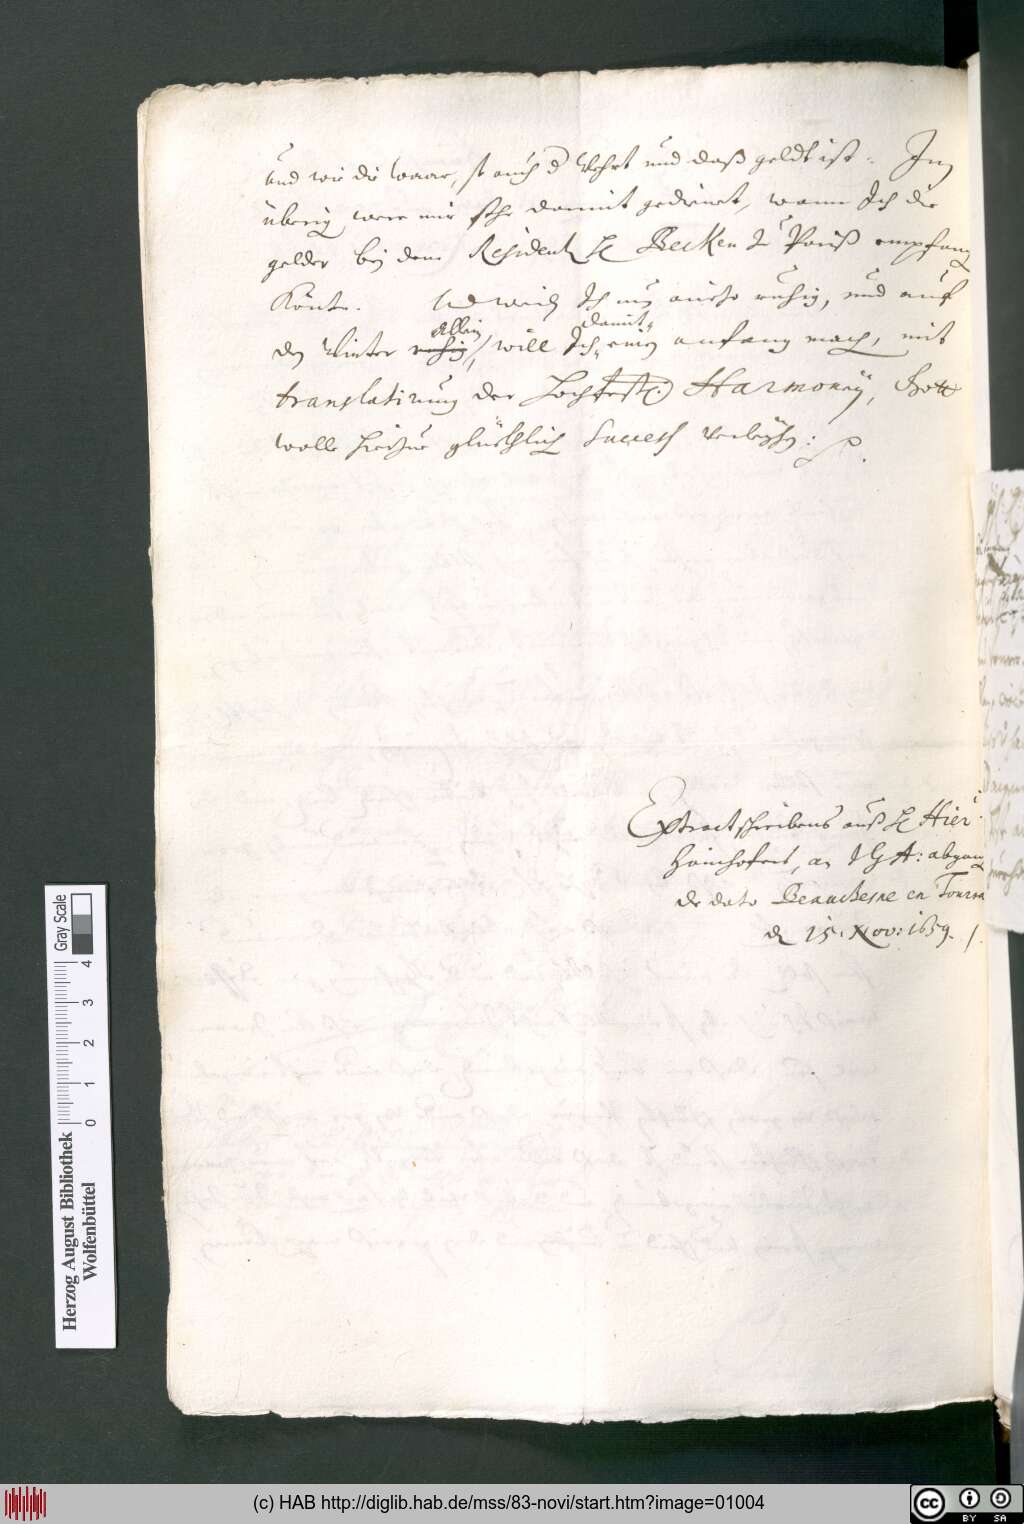 und wie die waar, ist auch d Wehrt und daß geldt ist. Im
überig were mir sehr damit gedienet, wann Ich die
gelder bei dem Resident H Becken Zu Pariß empfang
Könte. Und weil Ich nun mehr ruhig, und auf
den Winter ruhig allein, will Ich damit einen anfang mach, mit
translatirung der Hochfürstl: Harmoney, Gott
wolle hierzue glücklich Success verleyhen:
Extract schreibens auß H Hier:
Hainhofers, an IGA: abgang
de dato Beauchesne en Tourra
den 15. Nov: 1659.
Herzog August Bibliothek
Wolfenbüttel
0 1 2 3 4
Gray Scale
(c) HAB http://diglib.hab.de/mss/83-novi/start.htm?image=01004
cc BY SA